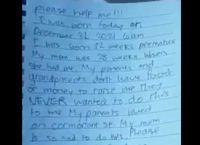 please help me!!!
I was born today on
December 31, 2021 6am
I was born 12 weeks premature
My mom was 28 weeks when
she had me. My parents and
grandparents dont have food
or money to raise me they
NEVER wanted to do this
to me My parents lived
on cormorant st My mom
is so sad to do this, Please